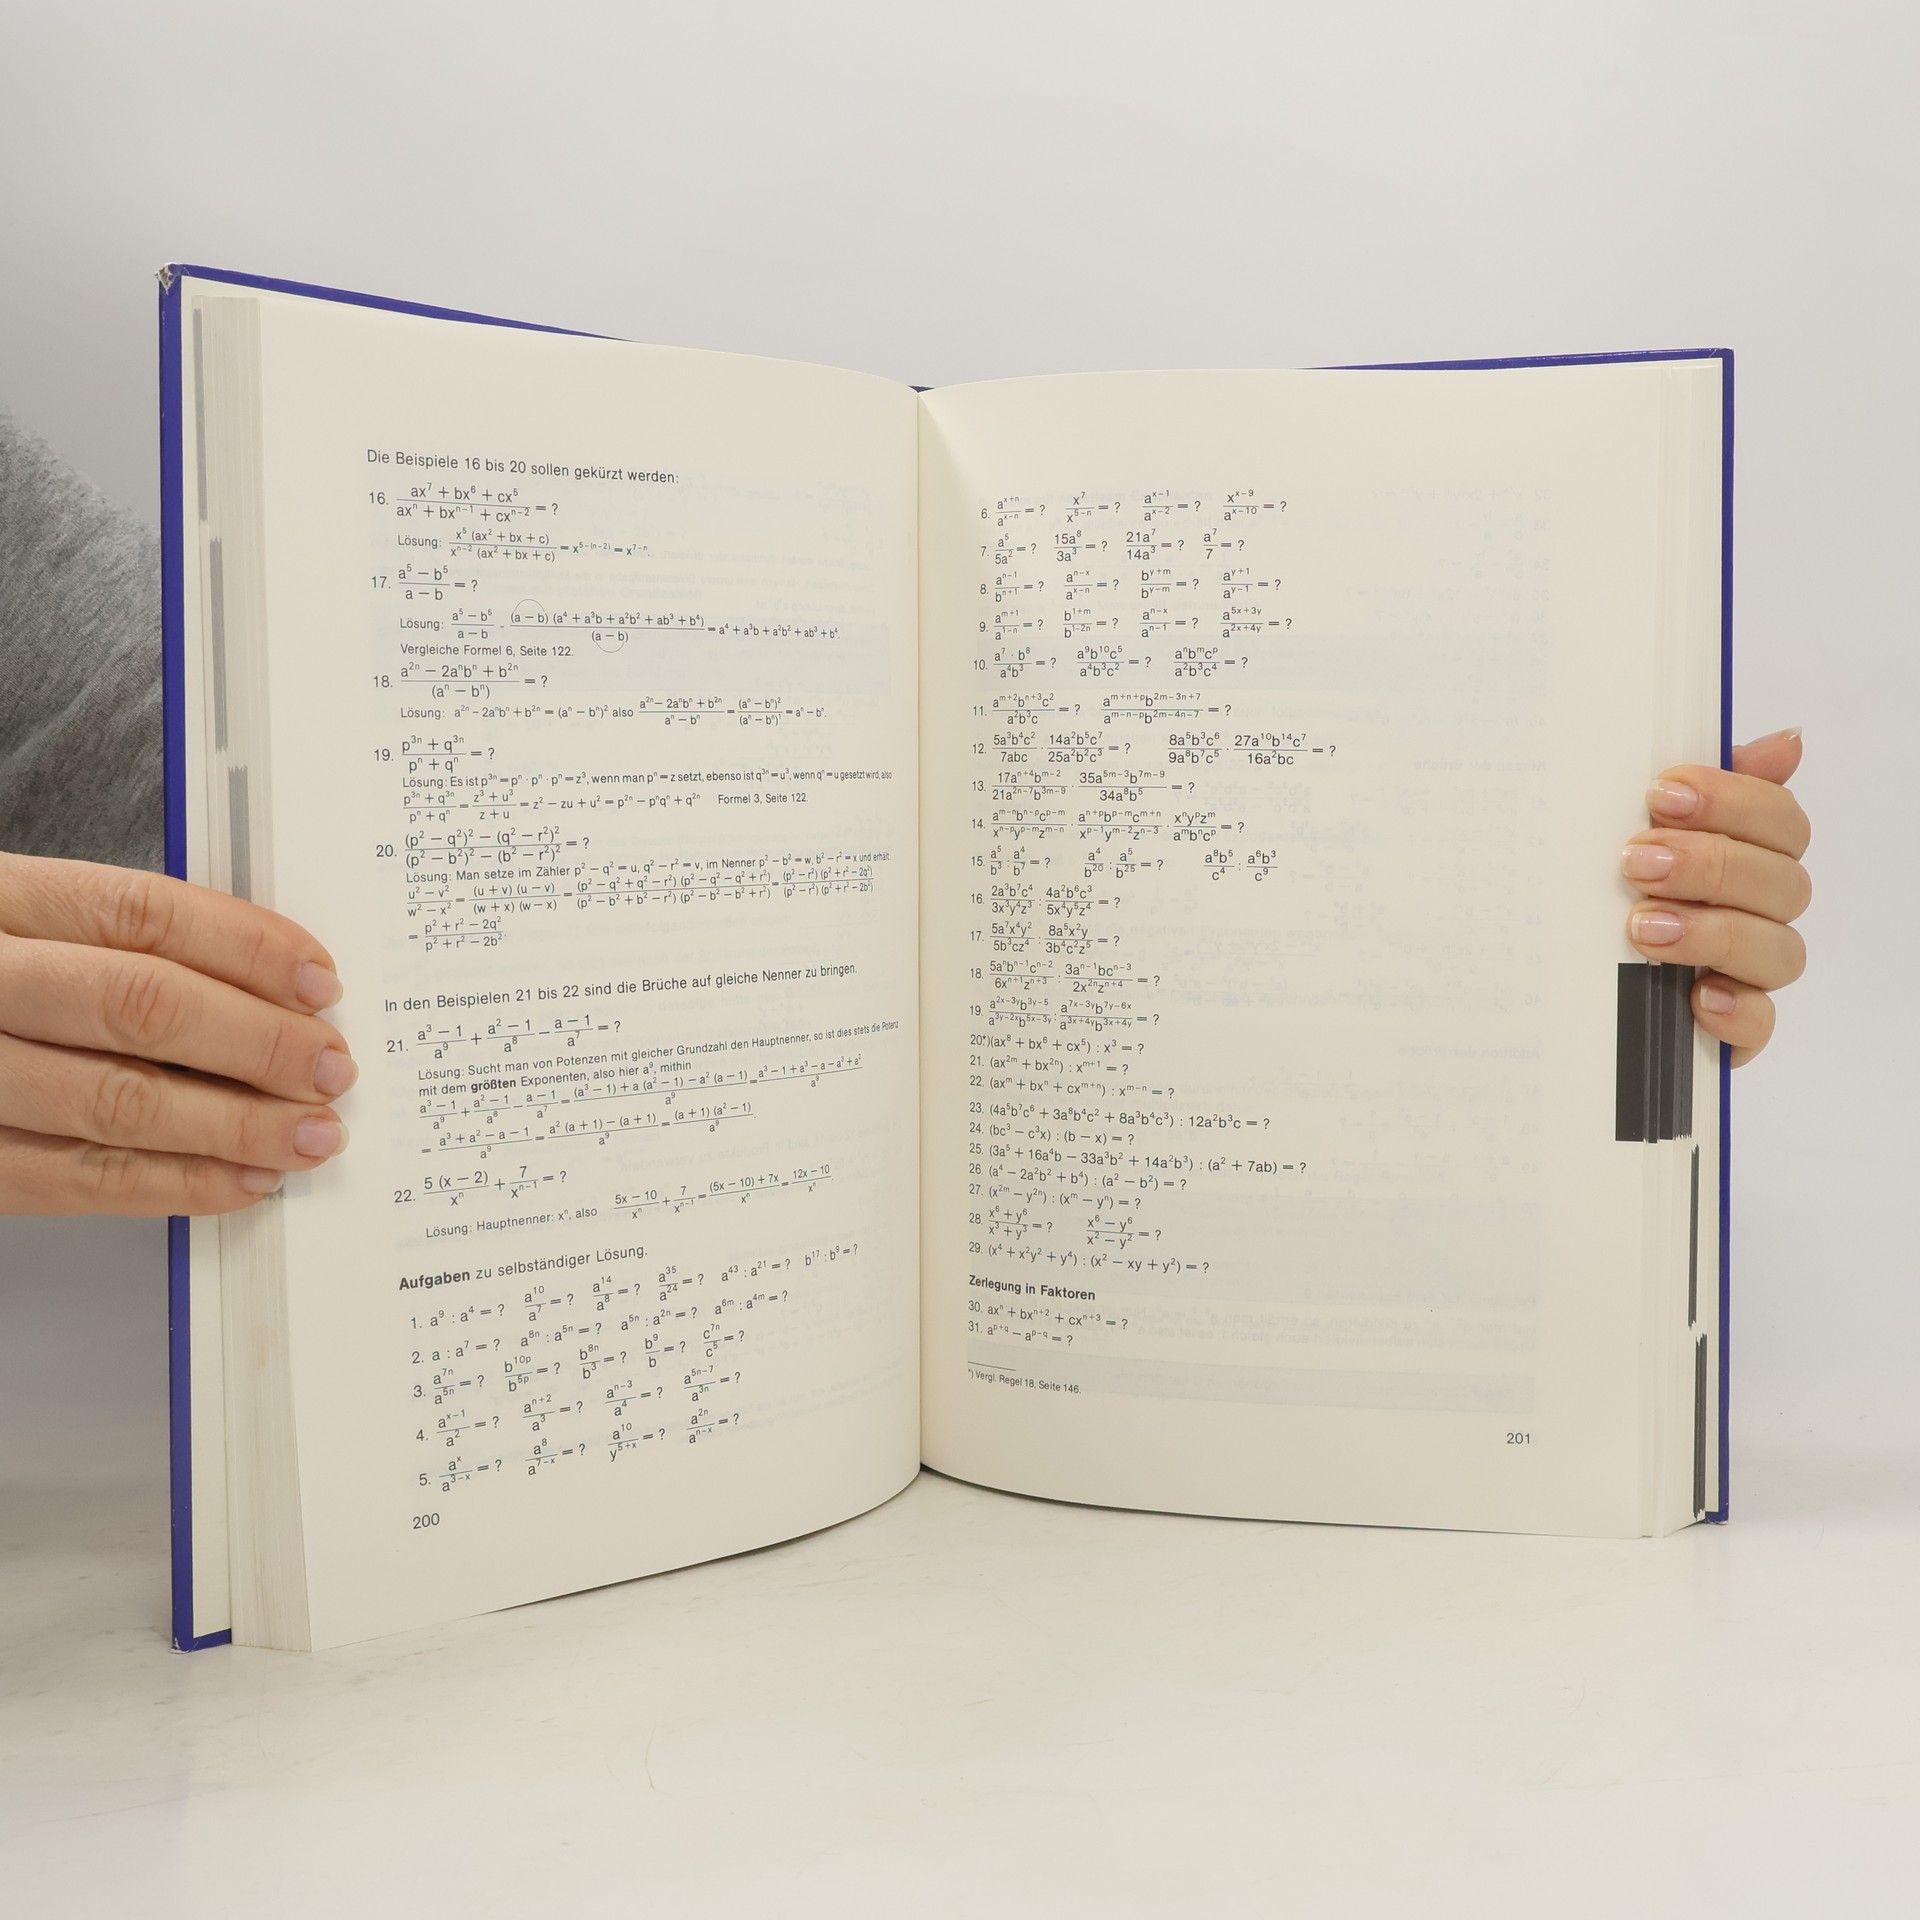 Die Beispiele 16 bis 20 sollen gekürzt werden:
16. (ax⁷ + bx⁶ + cx⁵)/(axⁿ + bxⁿ⁻¹ + cxⁿ⁻²) = ?
Lösung: (x⁵ (ax² + bx + c))/(xⁿ⁻² (ax² + bx + c)) = x⁵⁻⁽ⁿ⁻²⁾ = x⁷⁻ⁿ.
17. (a⁵ − b⁵)/(a − b) = ?
Lösung: (a⁵ − b⁵)/(a − b) - ((a − b) (a⁴ + a³b + a²b² + ab³ + b⁴))/((a − b)) = a⁴ + a³b + a²b² + ab³ + b⁴.
Vergleiche Formel 6, Seite 122.
18. (a²ⁿ − 2aⁿbⁿ + b²ⁿ)/((aⁿ − bⁿ)) = ?
Lösung: a²ⁿ − 2aⁿbⁿ + b²ⁿ = (aⁿ − bⁿ)² also (a²ⁿ − 2aⁿbⁿ + b²ⁿ)/(aⁿ − bⁿ) = (aⁿ − bⁿ)²/(aⁿ − bⁿ)¹ = aⁿ − bⁿ.
19. (p³ⁿ + q³ⁿ)/(pⁿ + qⁿ) = ?
Lösung: Es ist p³ⁿ = pⁿ · pⁿ · pⁿ = z³, wenn man pⁿ = z setzt, ebenso ist q³ⁿ = u³, wenn qⁿ = u gesetzt wird, also
(p³ⁿ + q³ⁿ)/(pⁿ + qⁿ) = (z³ + u³)/(z + u) = z² − zu + u² = p²ⁿ − pⁿqⁿ + q²ⁿ Formel 3, Seite 122.
20. ((p² − q²)² − (q² − r²)²)/((p² − b²)² − (b² − r²)²) = ?
Lösung: Man setze im Zähler p² − q² = u, q² − r² = v, im Nenner p² − b² = w, b² − r² = x und erhält:
(u² − v²)/(w² − x²) = ((u + v) (u − v))/((w + x) (w − x)) = ((p² − q² + q² − r²) (p² − q² − q² + r²))/((p² − b² + b² − r²) (p² − b² − b² + r²)) = ((p² − r²) (p² + r² − 2q²))/((p² − r²) (p² + r² − 2b²))
= (p² + r² − 2q²)/(p² + r² − 2b²).
In den Beispielen 21 bis 22 sind die Brüche auf gleiche Nenner zu bringen.
21. (a³ − 1)/a⁹ + (a² − 1)/a⁸ − (a − 1)/a⁷ = ?
Lösung: Sucht man von Potenzen mit gleicher Grundzahl den Hauptnenner, so ist dies stets die Potenz
mit dem größten Exponenten, also hier a⁹, mithin
(a³ − 1)/a⁹ + (a² − 1)/a⁸ − (a − 1)/a⁷ = ((a³ − 1) + a (a² − 1) − a² (a − 1))/a⁹ = (a³ − 1 + a³ − a − a³ + a²)/a⁹
= (a³ + a² − a − 1)/a⁹ = (a² (a + 1) − (a + 1))/a⁹ = ((a + 1) (a² − 1))/a⁹.
22. (5 (x − 2))/xⁿ + 7/xⁿ⁻¹ = ?
Lösung: Hauptnenner: xⁿ, also (5x − 10)/xⁿ + 7/xⁿ⁻¹ = ((5x − 10) + 7x)/xⁿ = (12x − 10)/xⁿ.
Aufgaben zu selbständiger Lösung.
1. a⁹ : a⁴ = ? a¹⁰/a⁷ = ? a¹⁴/a⁸ = ? a³⁵/a²⁴ = ? a⁴³ : a²¹ = ? b¹⁷ : b⁹ = ?
2. a : a⁷ = ? a⁸ⁿ : a⁵ⁿ = ? a⁵ⁿ : a²ⁿ = ? a⁶ᵐ : a⁴ᵐ = ?
3. a⁷ⁿ/a⁵ⁿ = ? b¹⁰ᵖ/b⁵ᵖ = ? b⁸ⁿ/b³ = ? b⁹/b = ? c⁷ⁿ/c⁵ = ?
4. aˣ⁻¹/a² = ? aⁿ⁺²/a³ = ? aⁿ⁻³/a⁴ = ? a⁵ⁿ⁻⁷/a³ⁿ = ?
5. aˣ/a³⁻ˣ = ? a⁸/a⁷⁻ˣ = ? a¹⁰/y⁵⁺ˣ = ? a²ⁿ/aⁿ⁻ˣ = ?
200
6. aˣ⁺ⁿ/aˣ⁻ⁿ = ? x⁷/x⁵⁻ⁿ = ? aˣ⁻¹/aˣ⁻² = ? xˣ⁻⁹/aˣ⁻¹⁰ = ?
7. a⁵/5a² = ? 15a⁸/3a³ = ? 21a⁷/14a³ = ? a⁷/7 = ?
8. aⁿ⁻¹/bⁿ⁺¹ = ? aⁿ⁻ˣ/aˣ⁻ⁿ = ? bʸ⁺ᵐ/bʸ⁻ᵐ = ? aʸ⁺¹/aʸ⁻¹ = ?
9. aᵐ⁺¹/a¹⁻ⁿ = ? b¹⁺ᵐ/b¹⁻²ⁿ = ? aⁿ⁻ˣ/aⁿ⁻¹ = ? a⁵ˣ⁺³ʸ/a²ˣ⁺⁴ʸ = ?
10. (a⁷ · b⁸)/(a⁴b³) = ? (a⁹b¹⁰c⁵)/(a⁴b³c²) = ? (aⁿbᵐcᵖ)/(a²b³c⁴) = ?
11. (aᵐ⁺²bⁿ⁺³c²)/(a²b³c) = ? (aᵐ⁺ⁿ⁺ᵖb²ᵐ⁻³ⁿ⁺⁷)/(aᵐ⁻ⁿ⁻ᵖb²ᵐ⁻⁴ⁿ⁻⁷) = ?
12. (5a³b⁴c²)/(7abc) · (14a²b⁵c⁷)/(25a²b²c³) = ? (8a⁵b³c⁶)/(9a⁸b⁷c⁵) · (27a¹⁰b¹⁴c⁷)/(16a²bc) = ?
13. (17aⁿ⁺⁴bᵐ⁻²)/(21a²ⁿ⁻⁷b³ᵐ⁻⁹) · (35a⁵ᵐ⁻³b⁷ᵐ⁻⁹)/(34a⁸b⁵) = ?
14. (aᵐ⁻ⁿbⁿ⁻ᵖcᵖ⁻ᵐ)/(xⁿ⁻ᵖyᵖ⁻ᵐzᵐ⁻ⁿ) · (aⁿ⁺ᵖbᵖ⁻ᵐcᵐ⁺ⁿ)/(xᵖ⁻¹yᵐ⁻²zⁿ⁻³) · (xⁿyᵖzᵐ)/(aᵐbⁿcᵖ) = ?
15. a⁵/b³ : a⁴/b⁷ = ? a⁴/b²⁰ : a⁵/b²⁵ = ? (a⁸b⁵)/c⁴ : (a⁶b³)/c⁹
16. (2a³b⁷c⁴)/(3x³y⁴z³) : (4a²b⁶c³)/(5x⁴y⁵z⁴) = ?
17. (5a⁷x⁴y²)/(5b³cz⁴) : (8a⁵x²y)/(3b⁴c²z⁵) = ?
18. (5aⁿbⁿ⁻¹cⁿ⁻²)/(6xⁿ⁺¹zⁿ⁺³) : (3aⁿ⁻¹bcⁿ⁻³)/(2x²ⁿzⁿ⁺⁴) = ?
19. (a²ˣ⁻³ʸb³ʸ⁻⁵)/(a³ʸ⁻²ˣb⁵ˣ⁻³ʸ) : (a⁷ˣ⁻³ʸb⁷ʸ⁻⁶ˣ)/(a³ˣ⁺⁴ʸb³ˣ⁺⁴ʸ) = ?
20*)(ax⁸ + bx⁶ + cx⁵) : x³ = ?
21. (ax²ᵐ + bx²ⁿ) : xᵐ⁺¹ = ?
22. (axᵐ + bxⁿ + cxᵐ⁺ⁿ) : xᵐ⁻ⁿ = ?
23. (4a⁵b⁷c⁶ + 3a⁸b⁴c² + 8a³b⁴c³) : 12a²b³c = ?
24. (bc³ − c³x) : (b − x) = ?
25. (3a⁵ + 16a⁴b − 33a³b² + 14a²b³) : (a² + 7ab) = ?
26. (a⁴ − 2a²b² + b⁴) : (a² − b²) = ?
27. (x²ᵐ − y²ⁿ) : (xᵐ − yⁿ) = ?
28. (x⁶ + y⁶)/(x³ + y³) = ? (x⁶ − y⁶)/(x² − y²) = ?
29. (x⁴ + x²y² + y⁴) : (x² − xy + y²) = ?
Zerlegung in Faktoren
30. axⁿ + bxⁿ⁺² + cxⁿ⁺³ = ?
31. aᵖ⁺q − aᵖ⁻q = ?
*) Vergl. Regel 18, Seite 146.
201